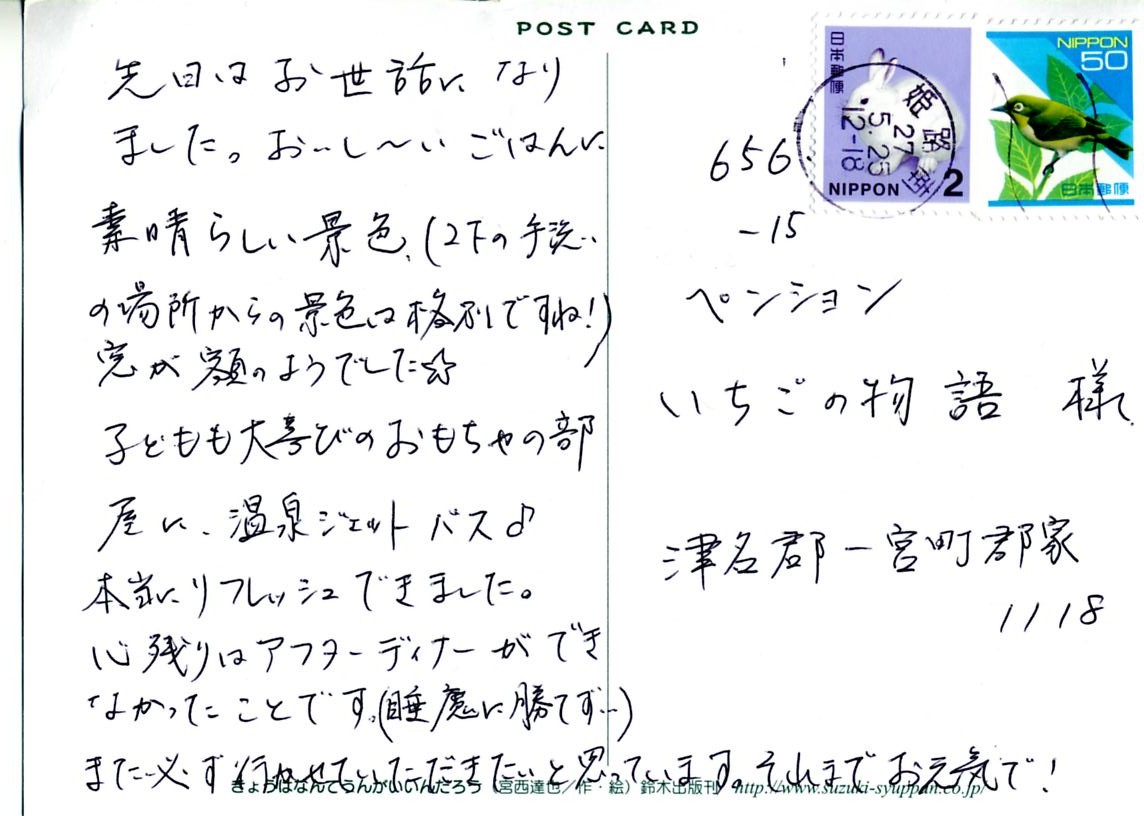 POST CARD
先日はお世話になり
ました。おいし〜い ごはんに
素晴らしい景色、(2Fの手洗い
の場所からの景色は格別ですね!)
窓が額のようでした☆
子どもも大喜びのおもちゃの部
屋に、温泉ジェットバス♪
本当にリフレッシュできました。
心残りはアフターディナーができ
なかったことです。(睡魔に勝てず…)
また必ず行かせていただきたいと思っています。それまでお元気で!
きょうはなんてうんがいいんだろう(宮西達也/作・絵)鈴木出版刊 http://www.suzuki-syuppan.co.jp/
日本郵便
NIPPON 2
姫路
27
5.25
12-18
NIPPON
50
日本郵便
656
-15
ペンション
いちごの物語 様
津名郡一宮町郡家
1118